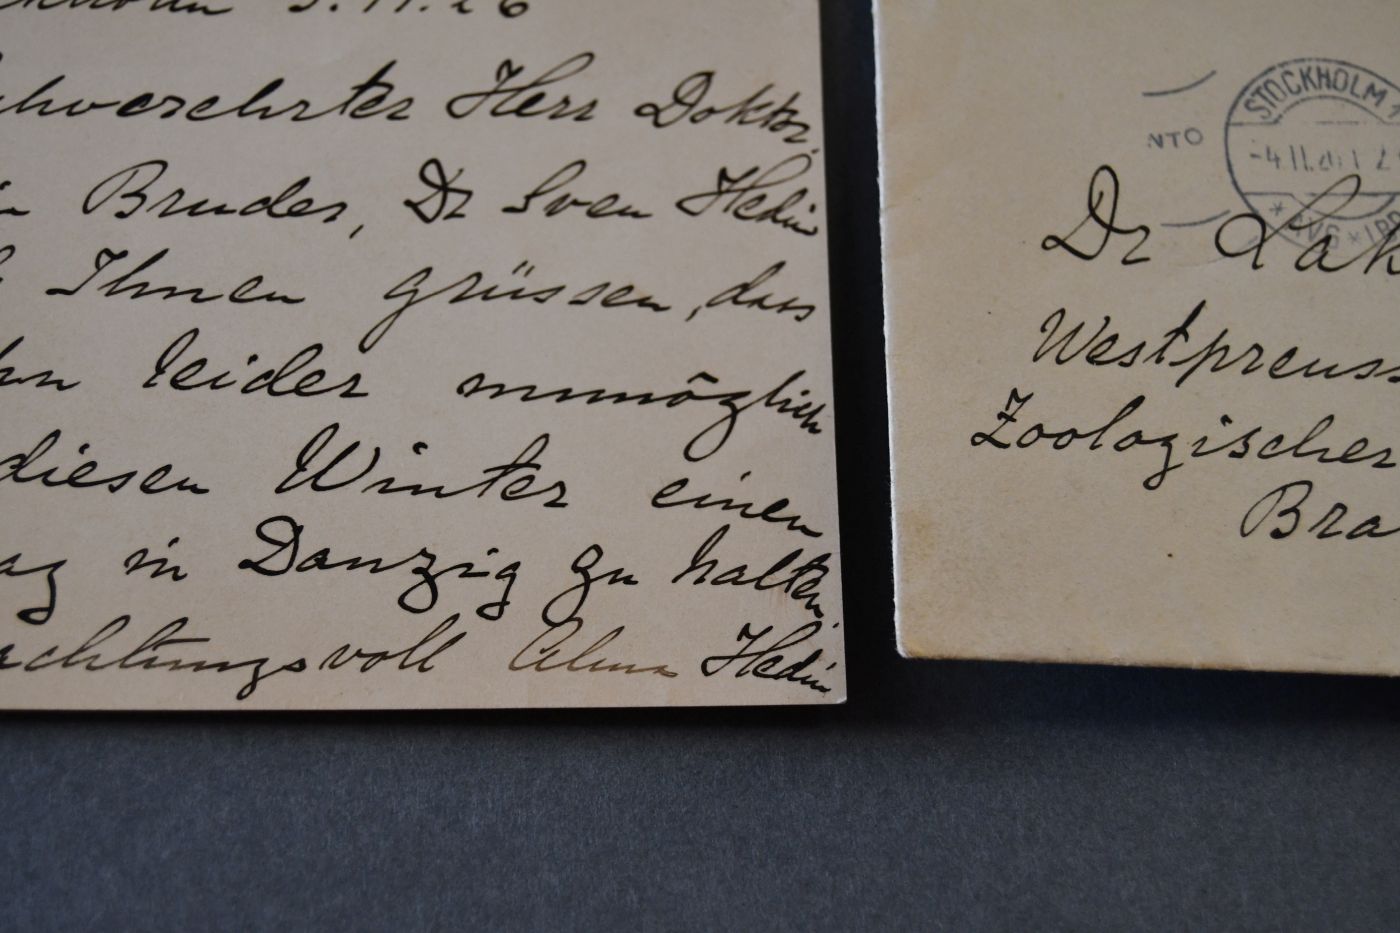 3.11.26
hverehrter Herr Doktor.
Bruder, Dr Sven Hedin
Ihnen grüssen, dass
leider unmöglich
diesen Winter einen
ag in Danzig zu halten.
achtungsvoll Alma Hedin
STOCKHOLM 1
NTO
-4.11.26
*AVG*
Dr Lak
Westpreuss
Zoologischer
Bra